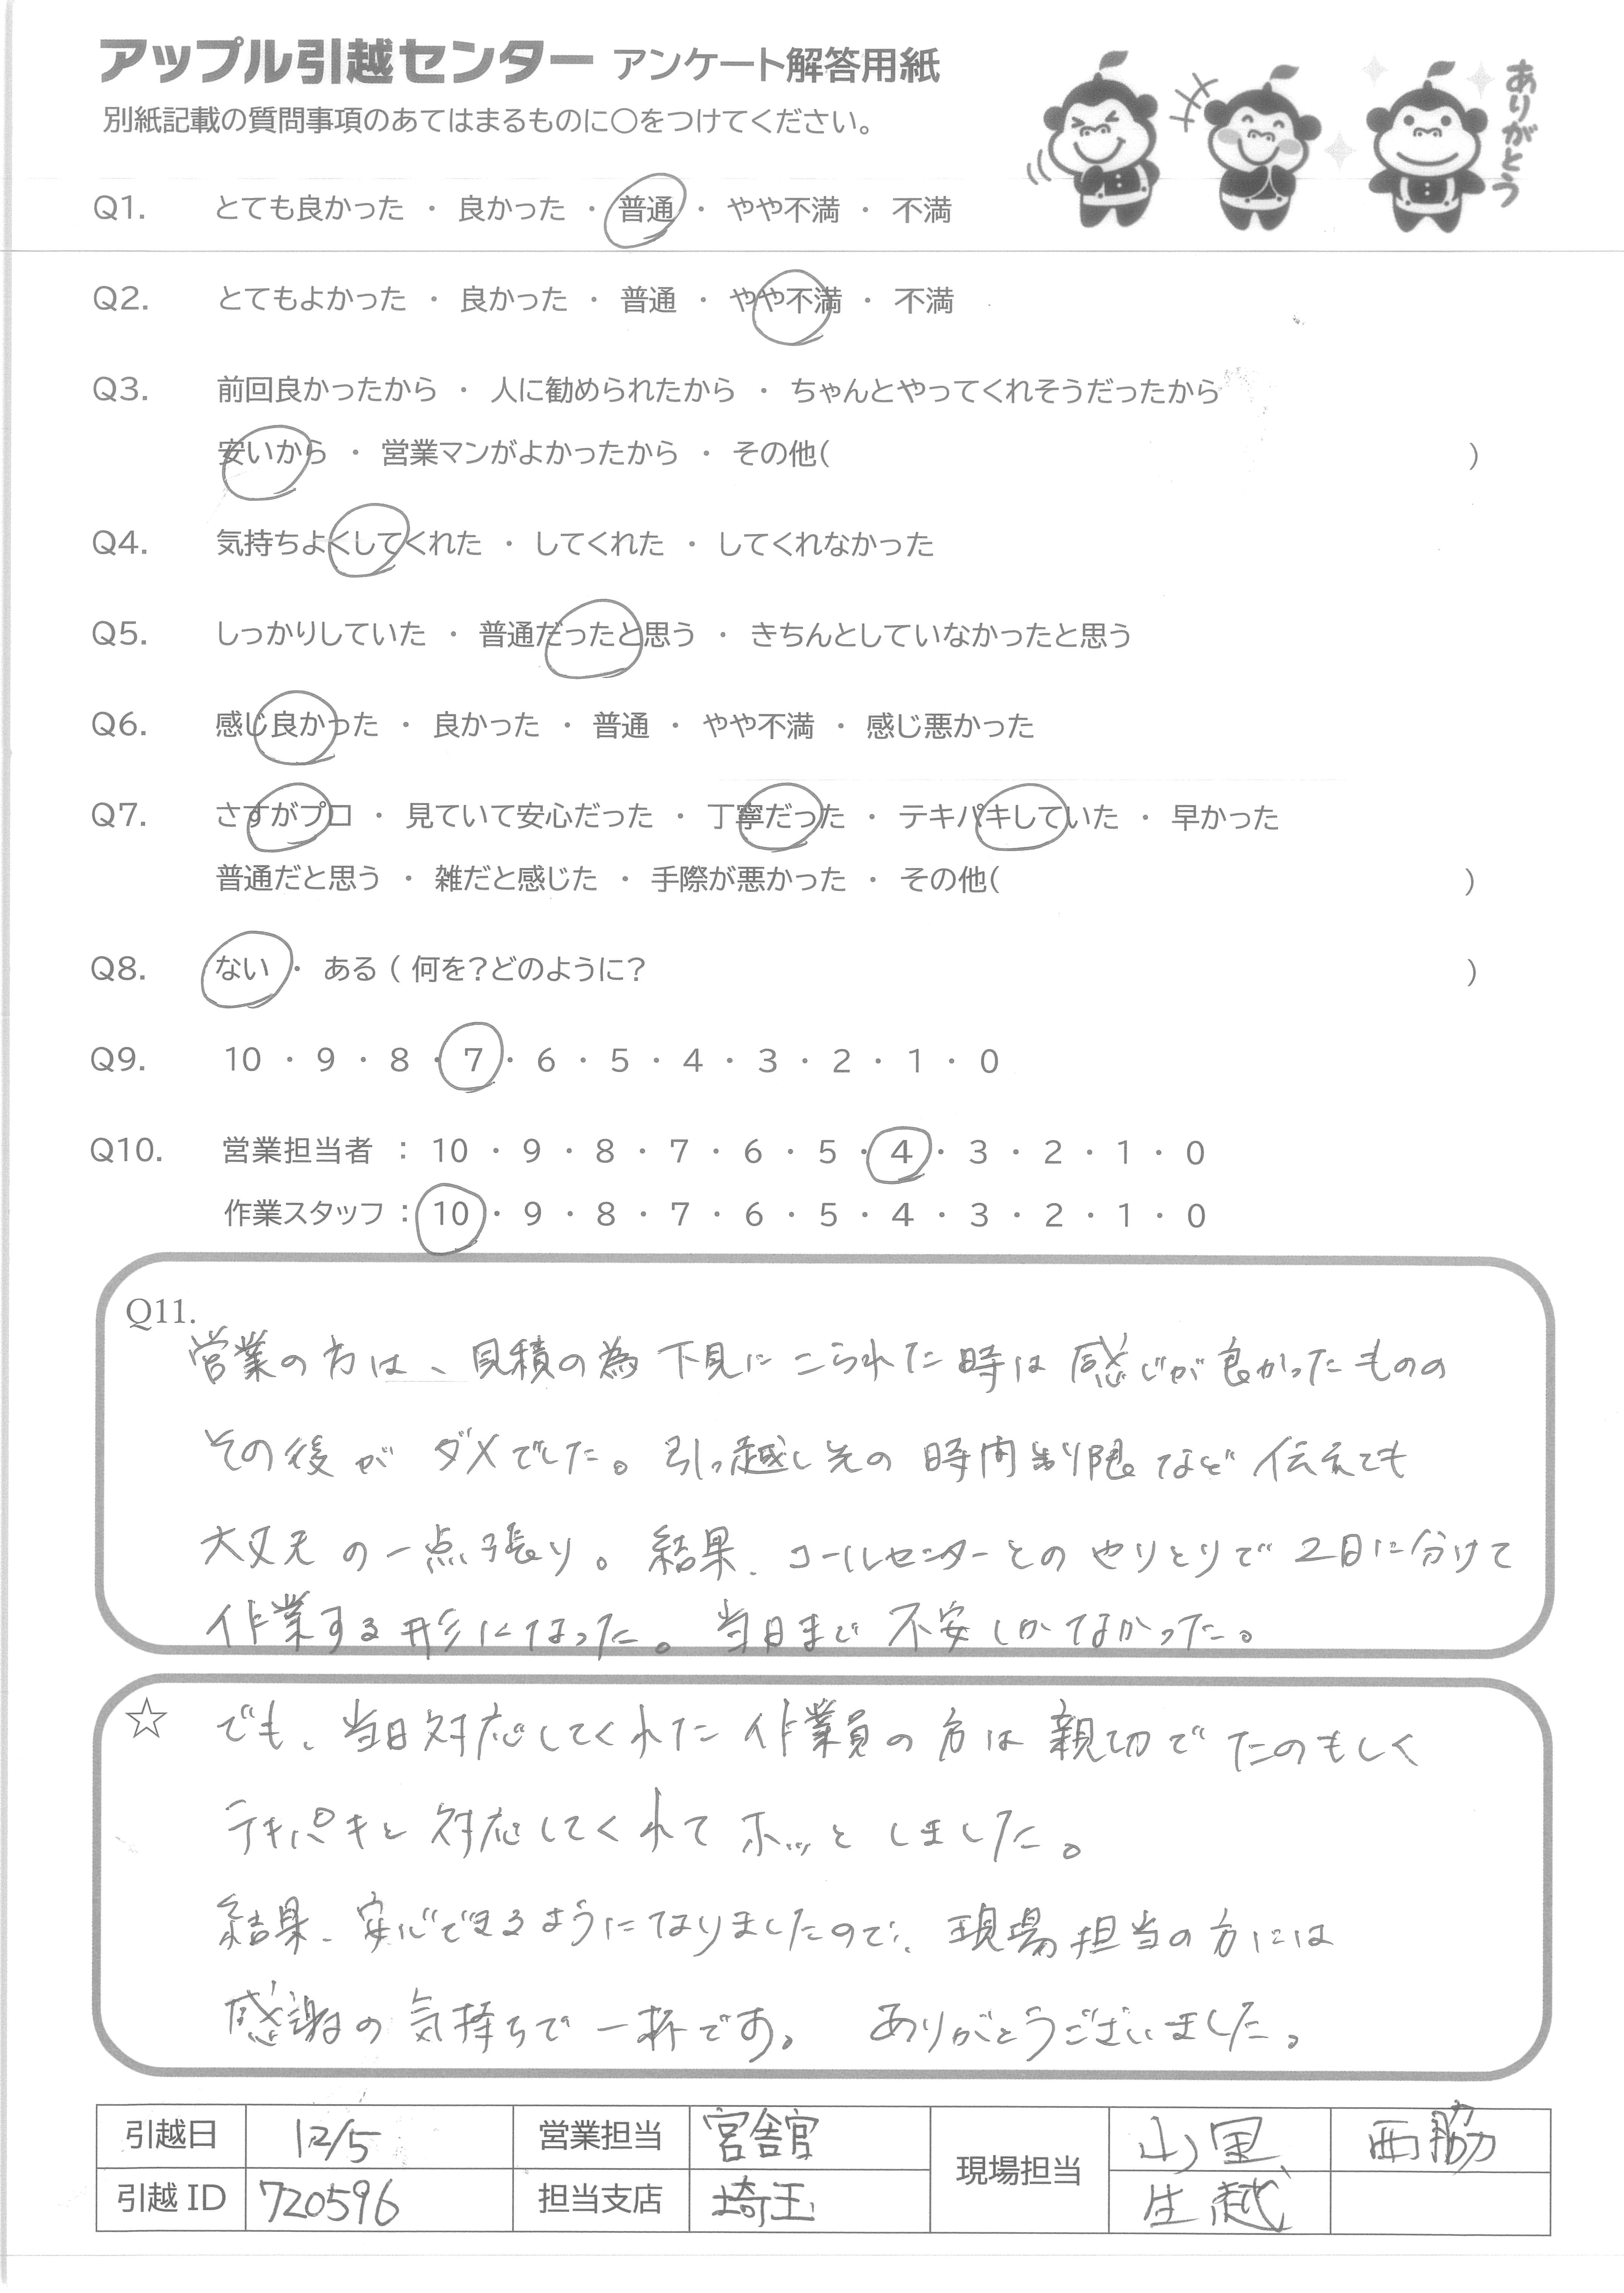 アップル引越センター アンケート解答用紙
ありがとう
別紙記載の質問事項のあてはまるものに○をつけてください。
Q1. とても良かった ・ 良かった ・ 普通 ・ やや不満 ・ 不満
Q2. とてもよかった ・ 良かった ・ 普通 ・ やや不満 ・ 不満
Q3. 前回良かったから ・ 人に勧められたから ・ ちゃんとやってくれそうだったから
安いから ・ 営業マンがよかったから ・ その他( )
Q4. 気持ちよくしてくれた ・ してくれた ・ してくれなかった
Q5. しっかりしていた ・ 普通だったと思う ・ きちんとしていなかったと思う
Q6. 感じ良かった ・ 良かった ・ 普通 ・ やや不満 ・ 感じ悪かった
Q7. さすがプロ ・ 見ていて安心だった ・ 丁寧だった ・ テキパキしていた ・ 早かった
普通だと思う ・ 雑だと感じた ・ 手際が悪かった ・ その他( )
Q8. ない ・ ある ( 何を?どのように? )
Q9. 10 ・ 9 ・ 8 ・ 7 ・ 6 ・ 5 ・ 4 ・ 3 ・ 2 ・ 1 ・ 0
Q10. 営業担当者 : 10 ・ 9 ・ 8 ・ 7 ・ 6 ・ 5 ・ 4 ・ 3 ・ 2 ・ 1 ・ 0
作業スタッフ : 10 ・ 9 ・ 8 ・ 7 ・ 6 ・ 5 ・ 4 ・ 3 ・ 2 ・ 1 ・ 0
Q11.
営業の方は、見積の為 下見に こられた時は 感じが良かったものの
その後が ダメでした。引っ越し先の 時間制限など 伝えても
大丈夫 の一点張り。結果、コールセンターとの やりとりで 2日に分けて
作業する形になった。当日まで 不安しかなかった。
☆ でも、当日対応してくれた 作業員の方は 親切で たのもしく
テキパキと 対応してくれて ホッと しました。
結果、安心できるようになりましたので、現場担当の方には
感謝の気持ちで一杯です。 ありがとうございました。
引越日 12/5 営業担当 宮舘 現場担当 山里 西脇
引越 ID 720596 担当支店 埼玉 生越